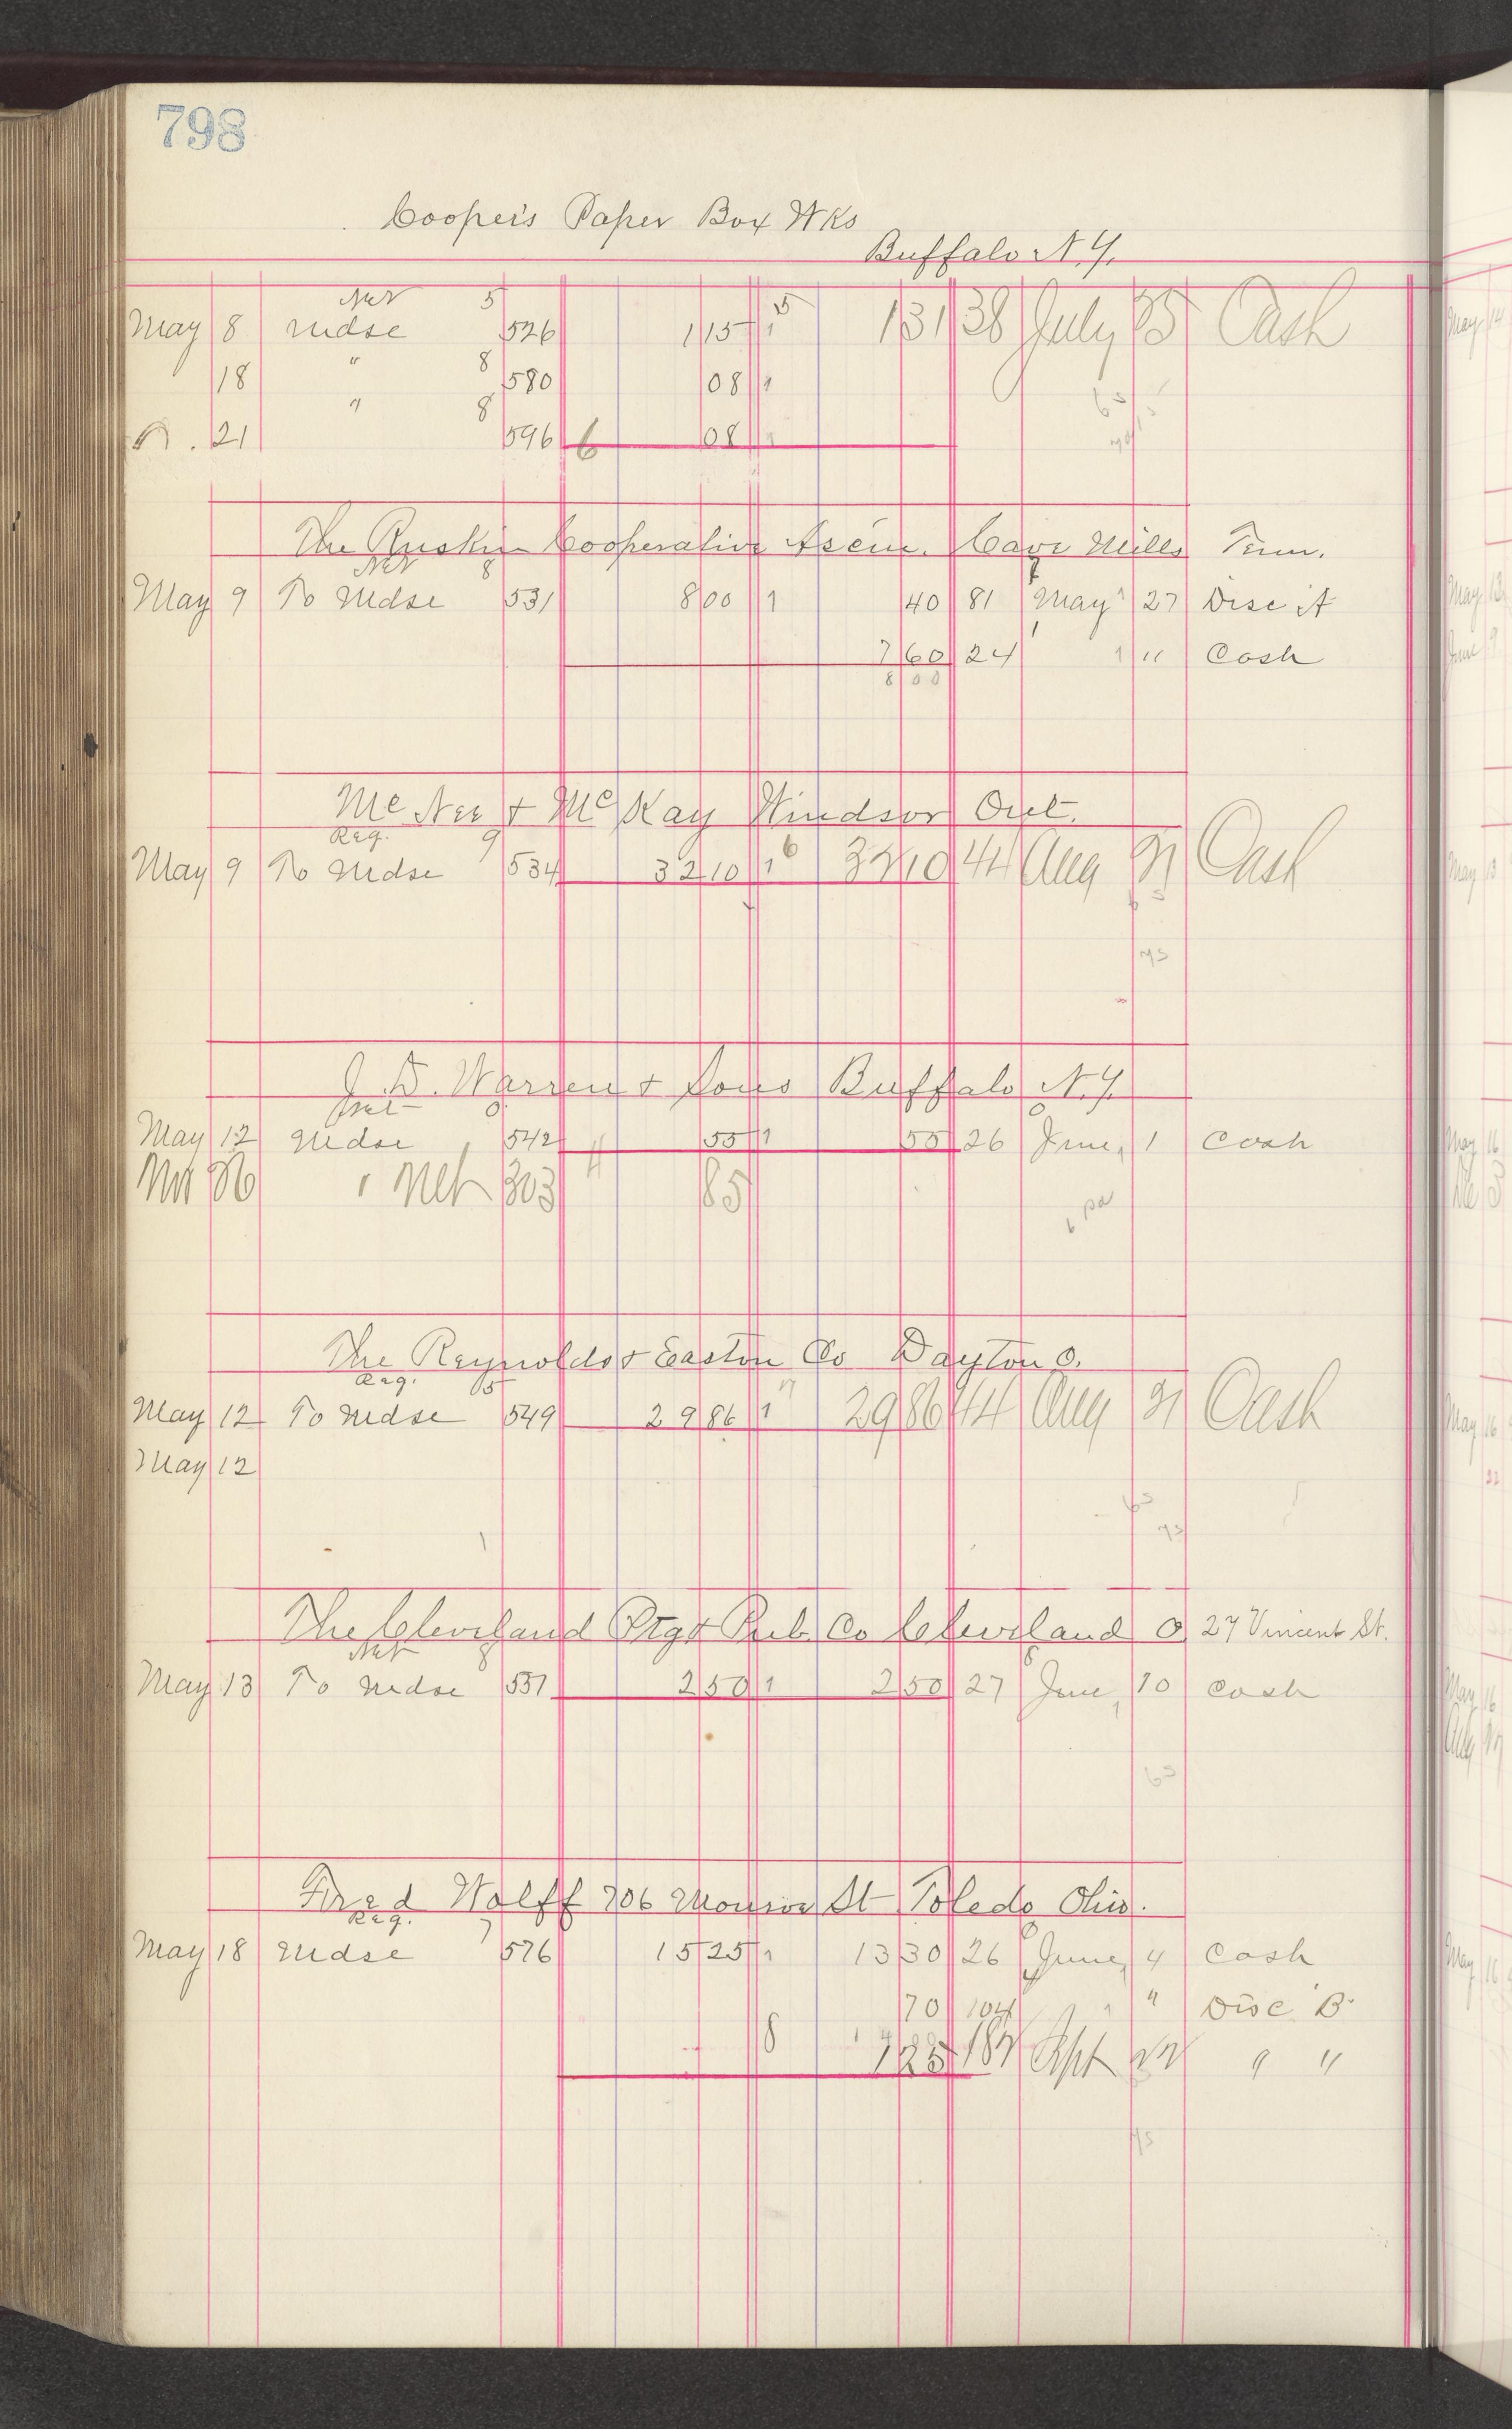 798
Cooper's Paper Box Wks
Buffalo N.Y.
Net 5
May 8 mdse 526 1 15 1 5 1 31 38 July 25 Cash
18 " 8 580 08 1
21 " 8 596 6 08 1
The Ruskin Cooperative Ascin. Cave Mills Tenn.
Net 8
May 9 To mdse 531 8 00 1 40 81 May 27 Disc A
7 60 24 " Cash
8 00
Mc Nee & McKay Windsor Ont.
Reg. 9
May 9 To mdse 534 32 10 1 6 32 10 44 Aug 31 Cash
J. D. Warren & Sons Buffalo N.Y.
Net
May 12 mdse 542 4 55 1 55 26 June 1 Cash
26 " Net 303 85
The Reynolds & Easton Co Dayton O.
Reg. 15
May 12 To mdse 549 29 86 1 29 86 44 Aug 31 Cash
May 12
The Cleveland Ptg & Pub. Co Cleveland O. 27 Vincent St.
Net 8
May 13 To mdse 551 2 50 1 2 50 27 June 10 Cash
Fred Wolff 706 Monroe St Toledo Ohio.
Reg. 7
May 18 mdse 576 15 25 1 13 30 26 June 4 Cash
70 104 " Disc B
8 1 25 187 Sept " "